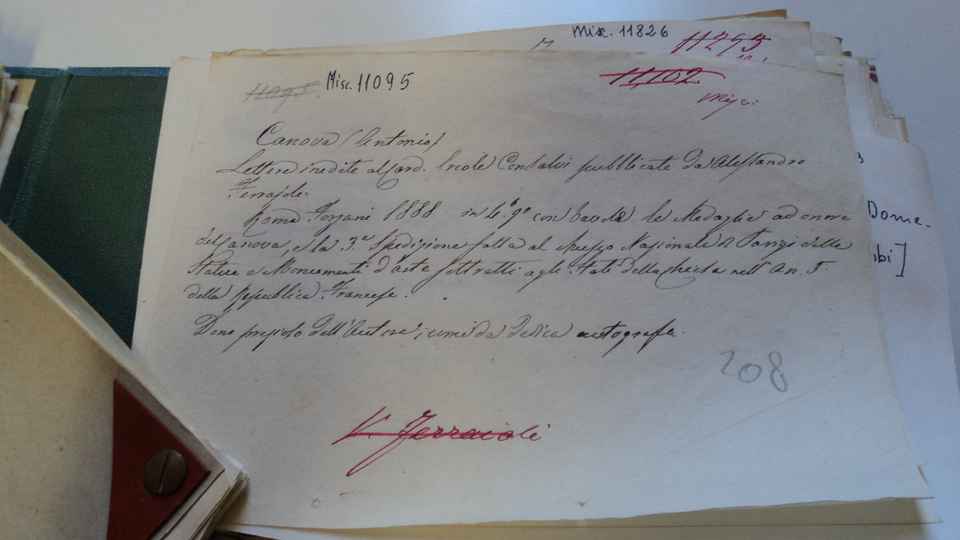 Misc. 11826
11293
11095. Misc. 11095
11,102
Misc.
Canova (Antonio)
Lettere inedite al Card. Ercole Consalvi pubblicate da Alessandro
Ferrajoli.
Roma Forzani 1888 in 4º gº con tavole le Medaglie ad onore
del Canova, e la 3ª Spedizione fatta al Museo Nazionale di Parigi delle
Statue e Monumenti d'arte sottratti agli Stati della Chiesa nell'An. 5.
della Repubblica Francese.
Dono prezioso dell'Autore, come da dedica autografa.
208
V. Ferraioli
Dome-
ibi]